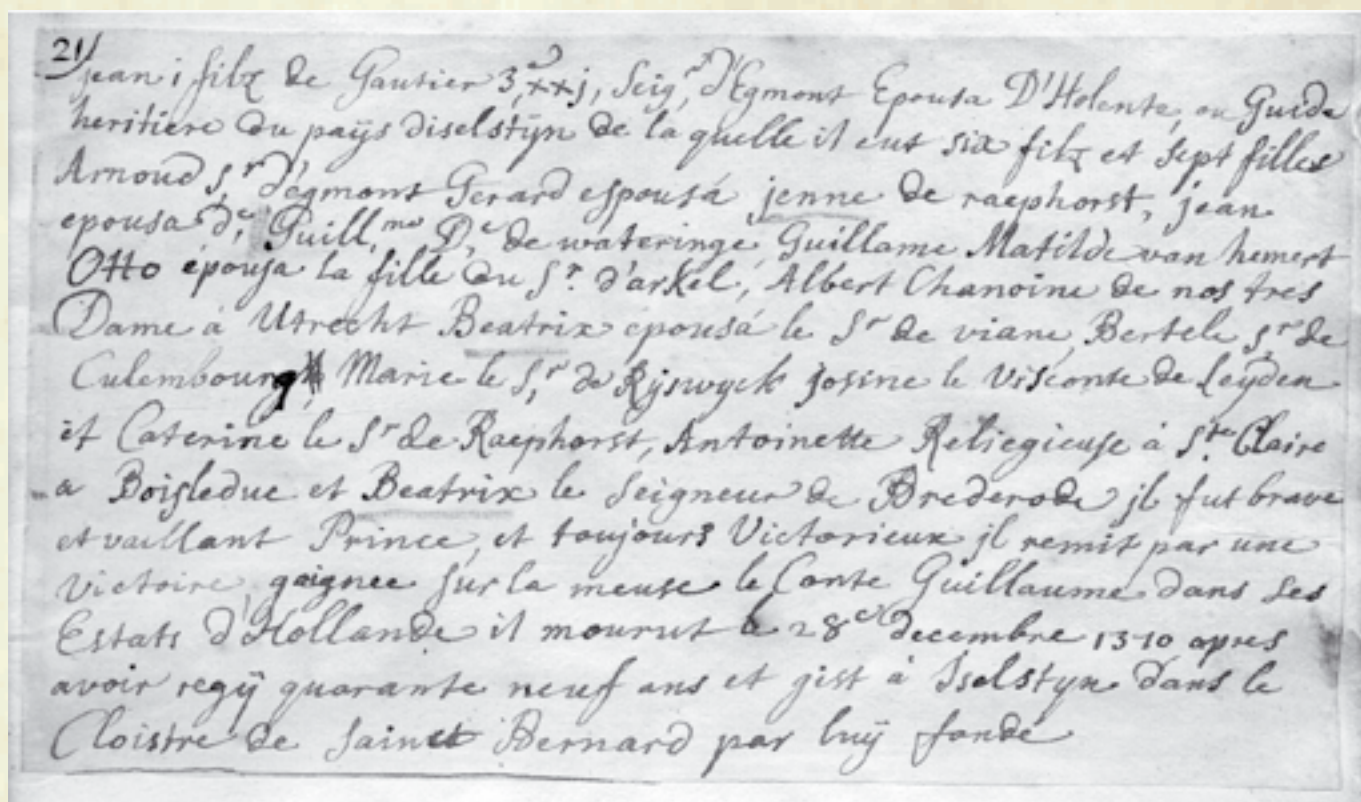 21/
jean i filz de Gautier 3,e xxj, Seig,r d'Egmont Epousa D'Holente, ou Guida
heritiere du paÿs diselstÿn de la quelle il eut six filz et sept filles
Arnoud S,r d'egmont Gerard espousá jenne de raephorst, jean
epousa d,e Guill,me D,e de wateringe, Guillame Matilde van hemert
Otto épousa la fille du S.r d'arkel, Albert Chanoine de nos tres
Dame à Utrecht Beatrix epousá le Sr de viane, Bertele Sr de
Culembourg, Marie le S,r de Rÿswyck Josine le Visconte de Leÿden
et Caterine le Sr de Raephorst, Antoinette Reliegieuse à S.te Claire
a Boisleduc et Beatrix le Seigneur de Brederode jl fut brave
et vaillant Prince, et toujours Victorieux jl remit par une
victoire gaignee sur la meuse le Conte Guillaume dans ses
Estats d'Hollande il mourut le 28e decembre 1310 apres
avoir regÿ quarante neuf ans et gist à Iselstyn dans le
Cloistre de Sainct Bernard par luÿ fondé